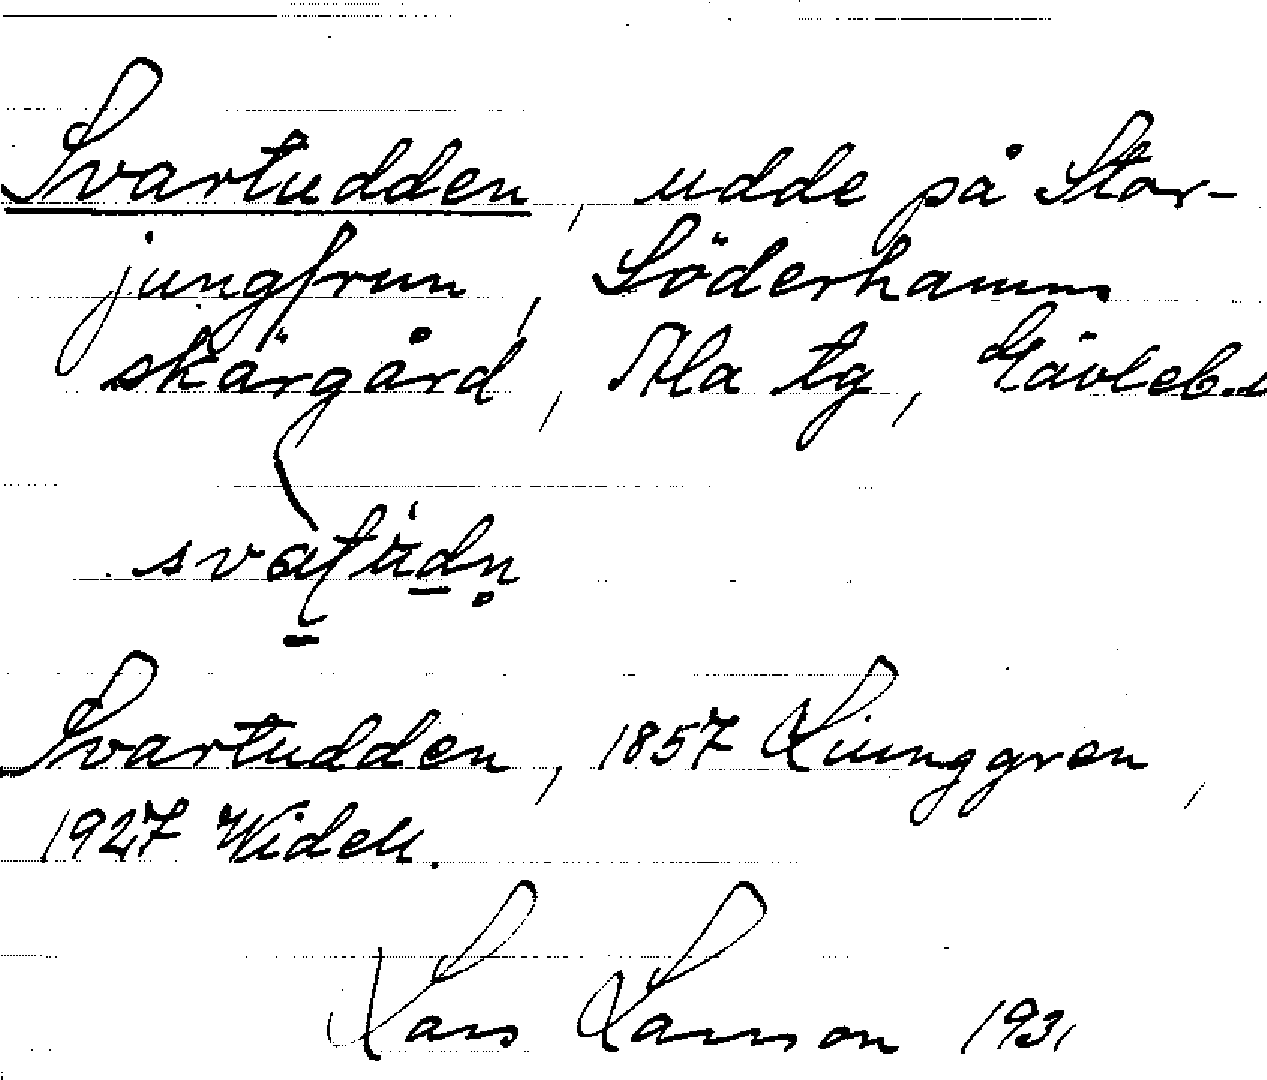 Svartudden, udde på Stor-
jungfrun, Söderhamns
skärgård, Ala tg, Gävleb.l
Svartudden, 1857 Ljunggren,
1927 Widell.
Lars Larsson 1931